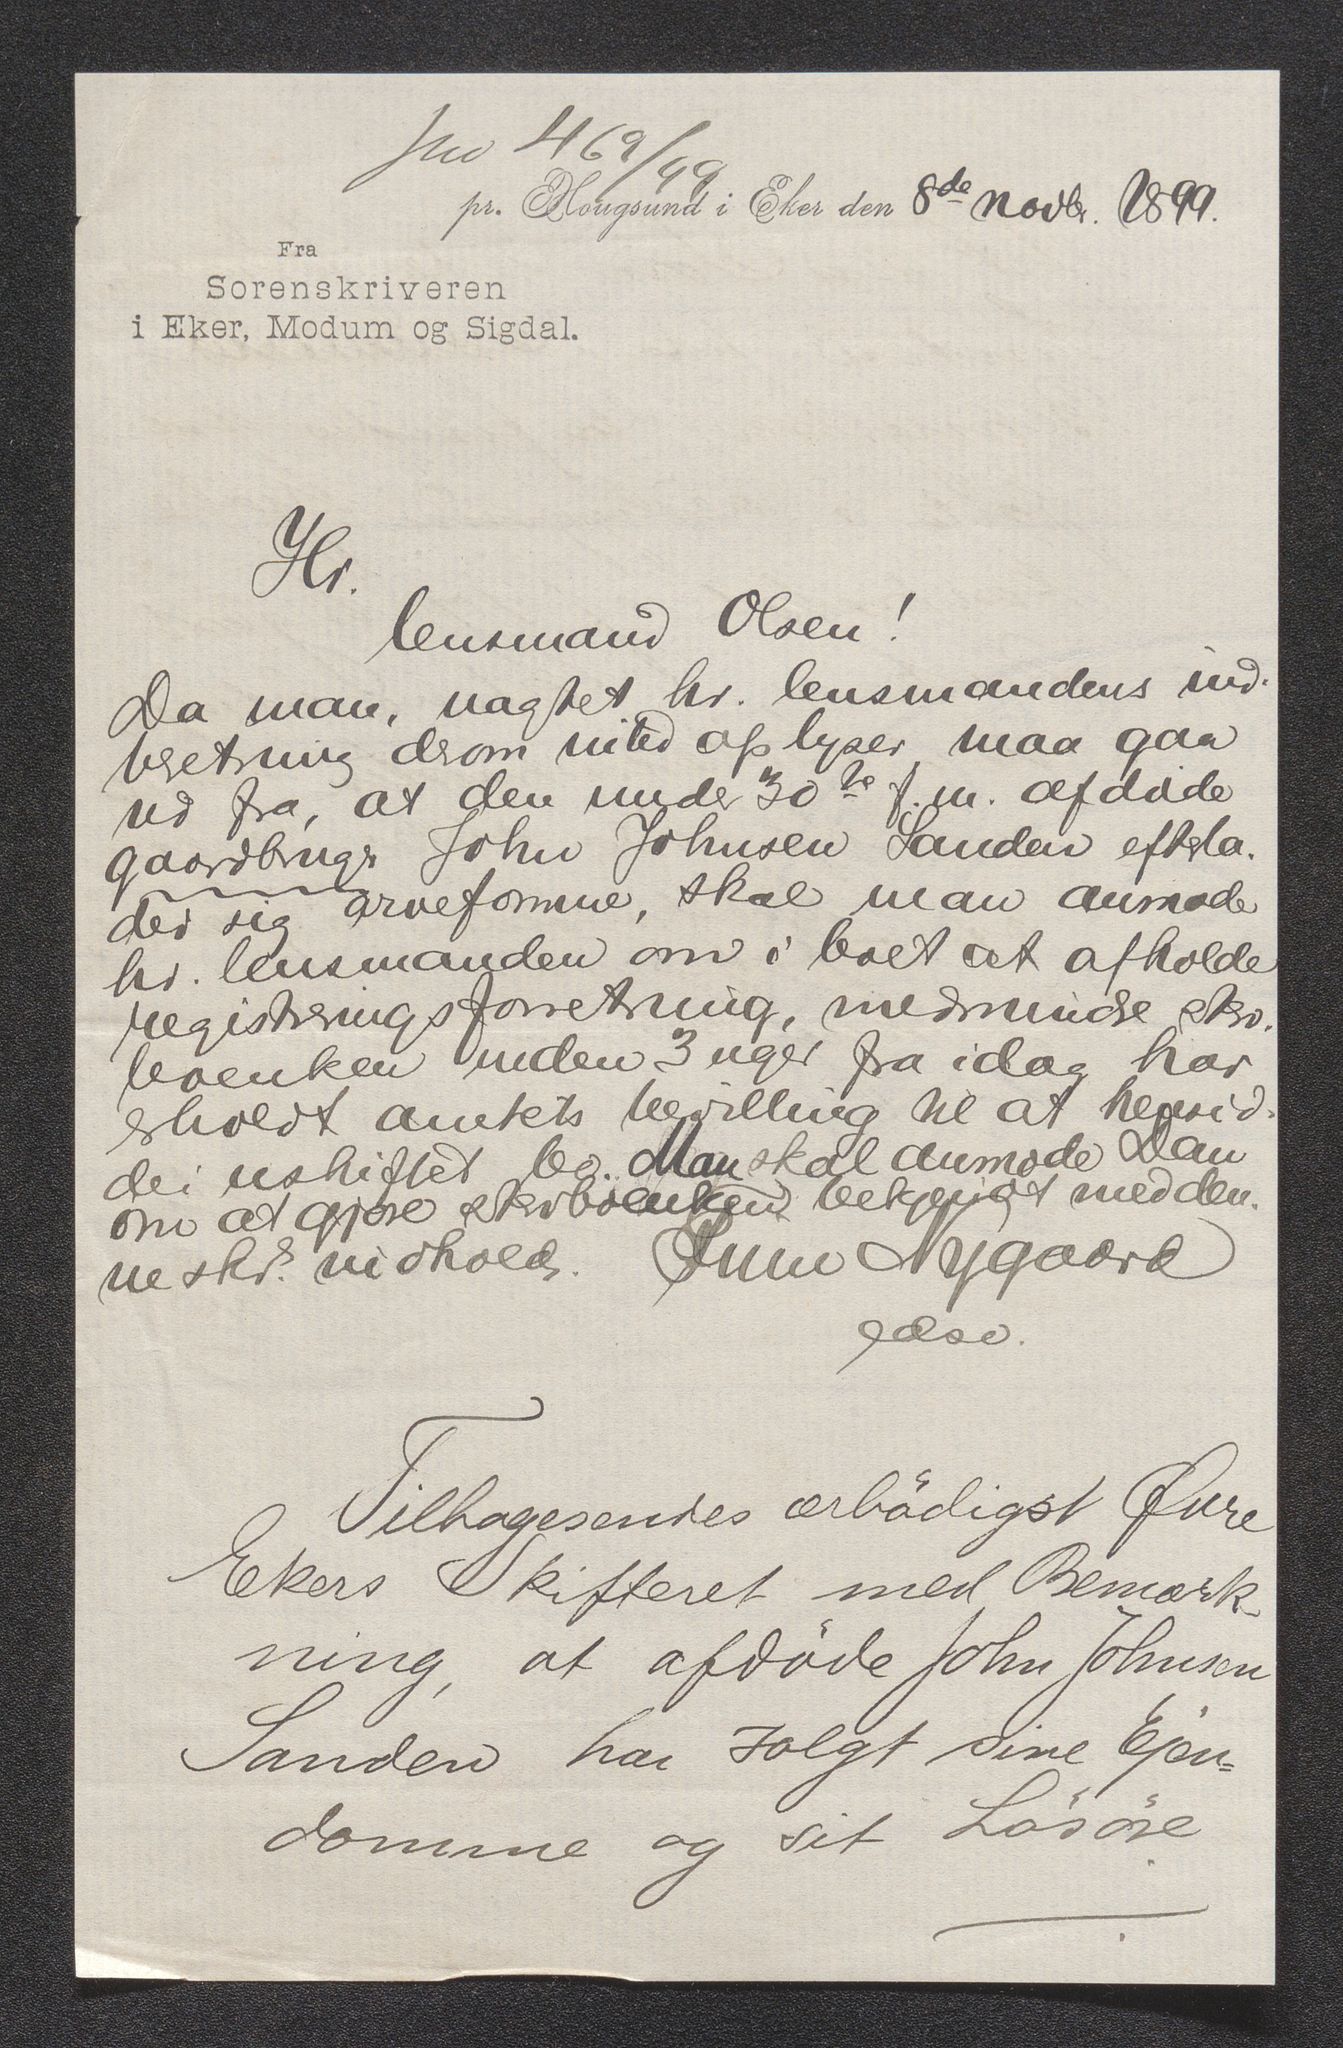 Jno 469/99
pr. Hougsund i Eker den 8de Novbr. 1899.
Fra
Sorenskriveren
i Eker, Modum og Sigdal.
Hr.
lensmand Olsen!
Da man, uagtet hr. lensmandens ind-
beretning derom intet oplyser, maa gaa
ud fra, at den under 30te f. m. afdøde
gaardbruger John Johnsen Sanden efterla-
der sig arveformue, skal man anmode
hr. lensmanden om i boet at afholde
registreringsforretning, medmindre enke-
inden 3 uger fra idag har
erholdt amtets bevilling til at hensid-
de i uskiftet bo. Man skal anmode Dem
om at gjøre bekjendt med den-
ne skr. indhold. Nygaard
Tilbagesendes ærbödigst Øvre
Ekers Skifteret med Bemærk-
ning, at afdöde John Johnsen
Sanden har solgt sine Ejen-
domme og sit Lösöre